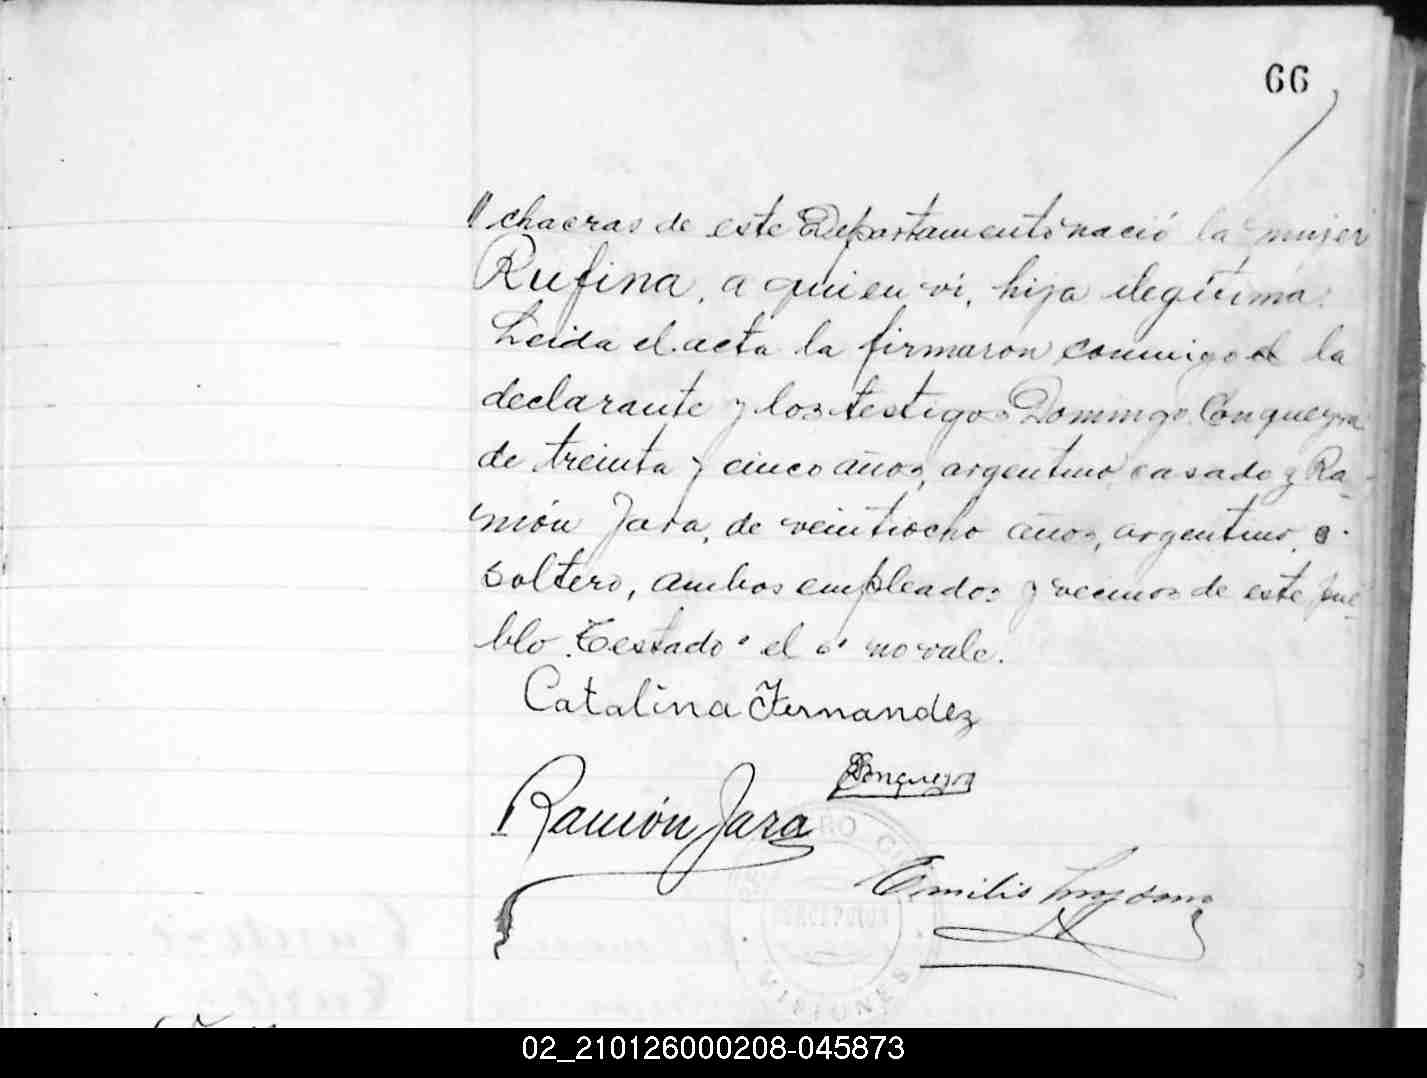 66
" chacras de este Departamento nació la mujer
Rufina, a quien vi, hija ilegítima.
Leida el acta la firmaron conmigo el la
declarante y los testigos Domingo
de treinta y cinco años, argentino casado y Ra-
món Jara, de veintiocho años, argentino,
soltero, ambos empleados y vecinos de este pue-
blo. Testado "el" no vale.
Catalina Fernandez
Ramón Jara
Emilio
REGISTRO CIVIL
CONCEPCION
MISIONES
02_210126000208-045873